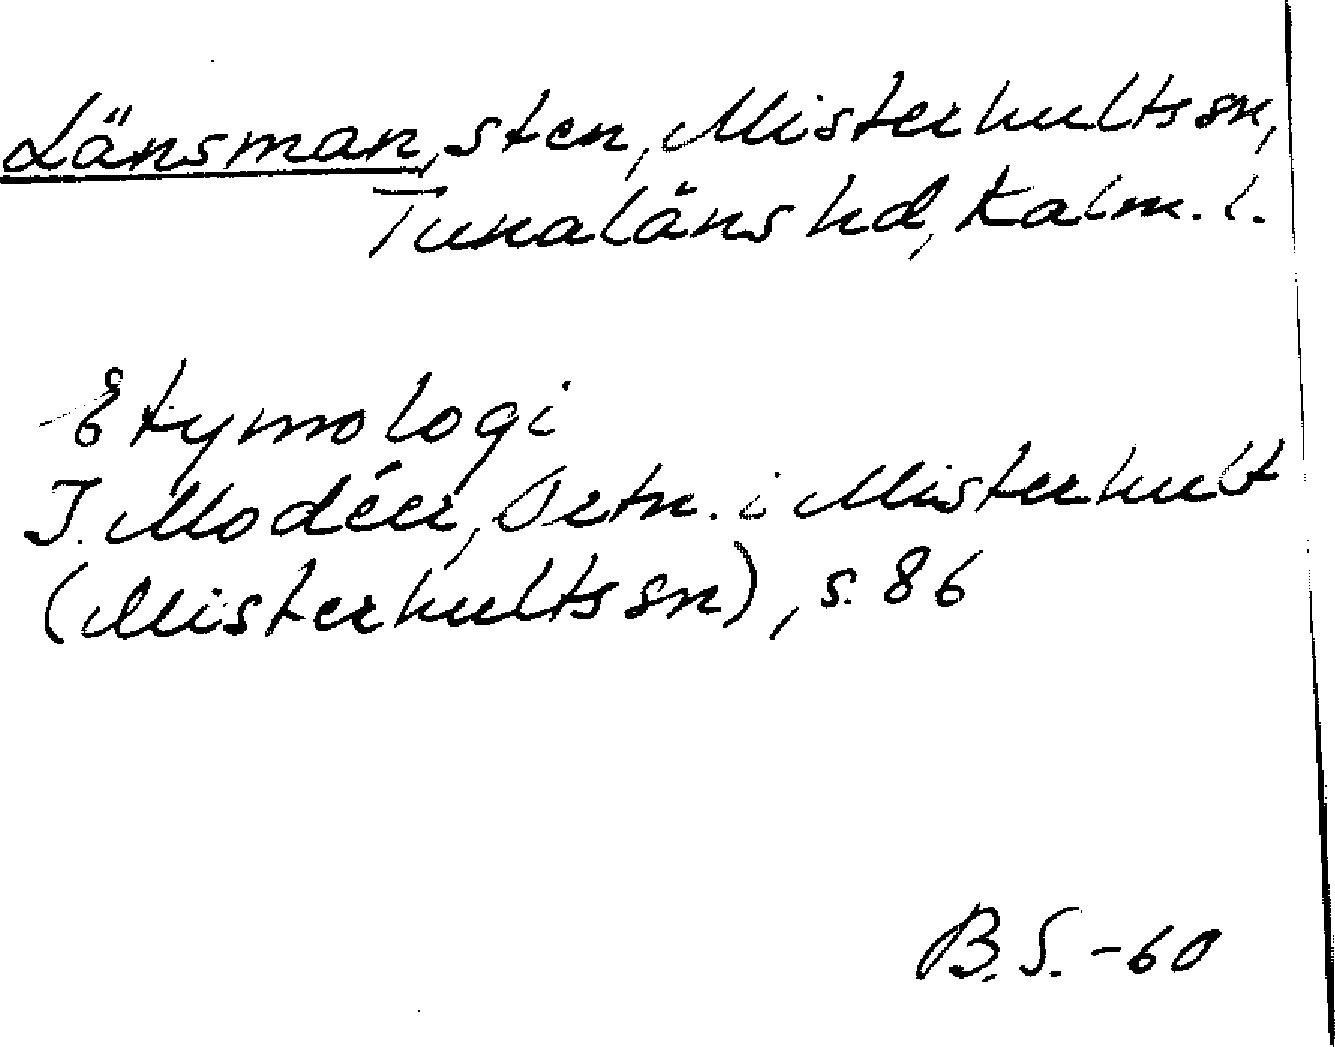 Länsman, sten, Misterhultssn,
Tunaläns hd, Kalm. l.
Etymologi
I. Modéer, Ortn. i Misterhult
(Misterhultssn), s. 86
B.S. -60